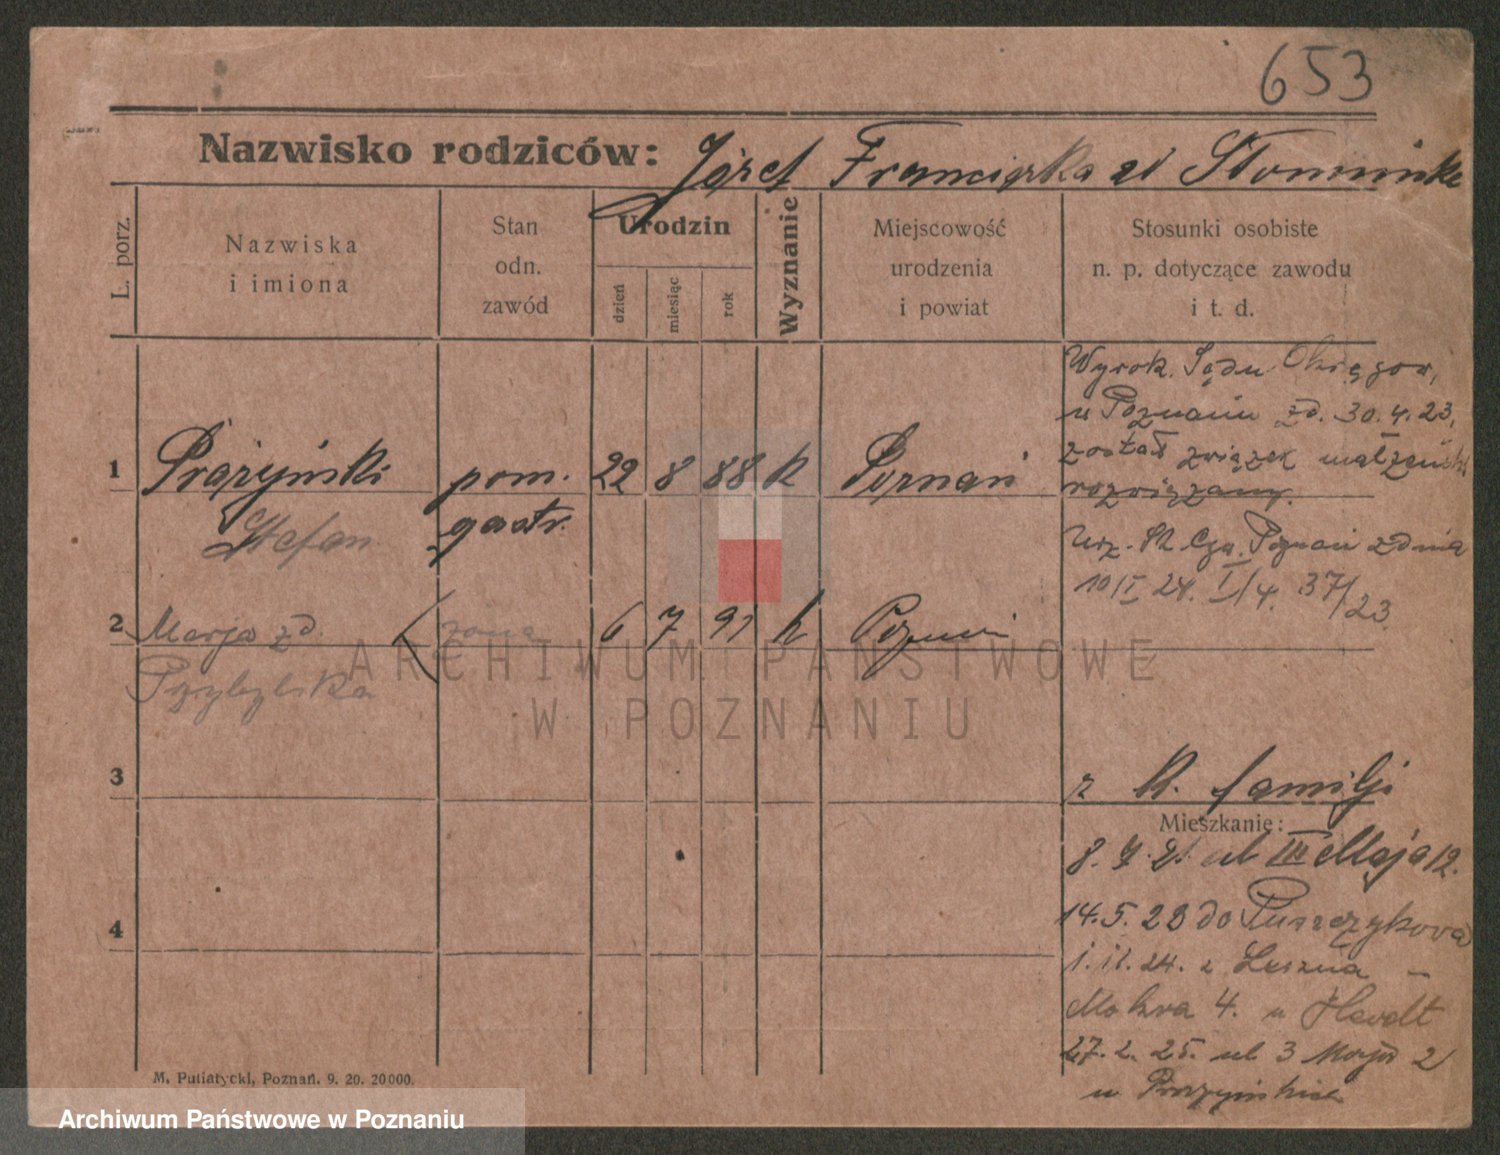 653
Nazwisko rodziców: Józef Franciszka zd Słomińska
L. porz.
Nazwiska
i imiona
Stan
odn.
zawód
Urodzin
dzień
miesiąc
rok
Wyznanie
Miejscowość
urodzenia
i powiat
Stosunki osobiste
n. p. dotyczące zawodu
i t. d.
Wyrok. Sądu Okręgow,
w Poznaniu zd. 30.4.23,
został związek małżeński
rozwiązany.
1 Prażyński pom. 22 8 88 k Poznań
Stefan gastr.
Poznań z dnia
10/I 24. I/4. 37/23
2 Marja zd żona 6 7 91 k Poznań
Przybylska
3
z K. familji
Mieszkanie:
8. 7. 21 ul III Maja 12.
4
14.5.23 do Puszczykowa
1.11.24. z Leszna –
Mokra 4. u Havdt
27.2.25. ul 3 Maja 2
u Prażyńskich
M. Putiatycki, Poznań. 9. 20. 20000.
ARCHIWUM PAŃSTWOWE
W POZNANIU
Archiwum Państwowe w Poznaniu